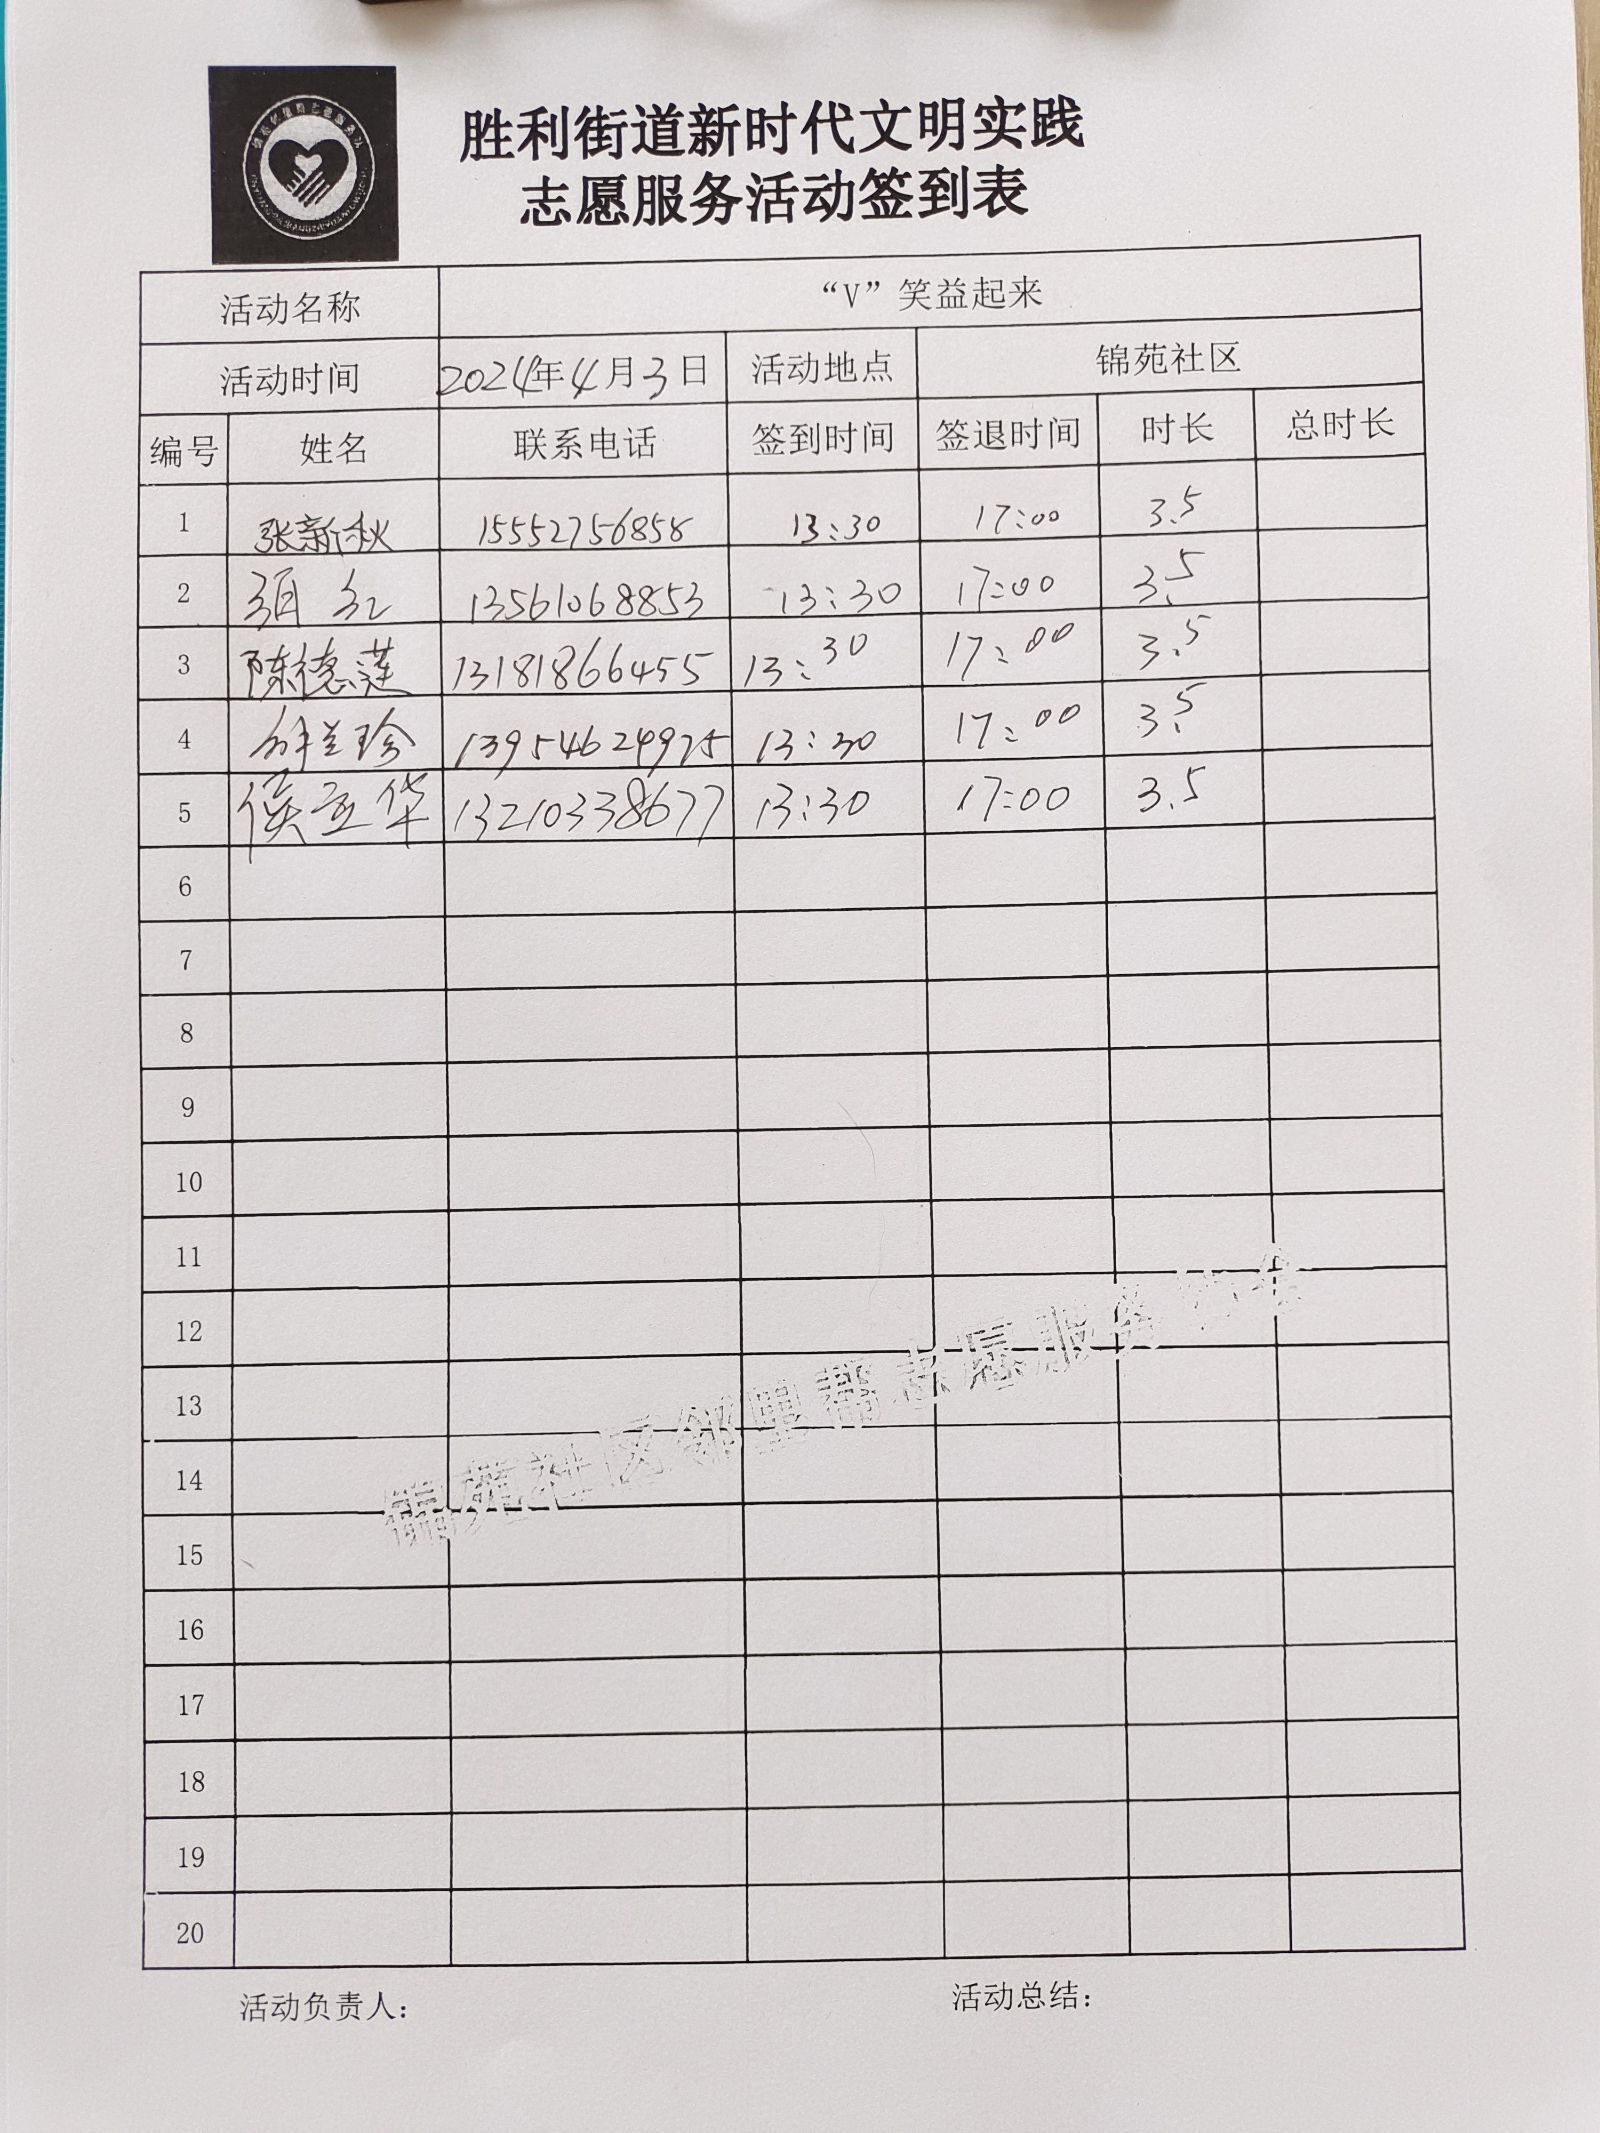 胜利街道新时代文明实践
志愿服务活动签到表
活动名称 “V”笑益起来
活动时间 2024年4月3日 活动地点 锦苑社区
编号 姓名 联系电话 签到时间 签退时间 时长 总时长
1 张新秋 15552756858 13:30 17:00 3.5
2 红 13561068853 13:30 17:00 3.5
3 陈德莲 13181866455 13:30 17:00 3.5
4 兰珍 13954624975 13:30 17:00 3.5
5 侯立华 13210338677 13:30 17:00 3.5
6
7
8
9
10
11
12
13
14
15
16
17
18
19
20
锦苑社区邻里帮志愿服务协会
活动负责人: 活动总结: